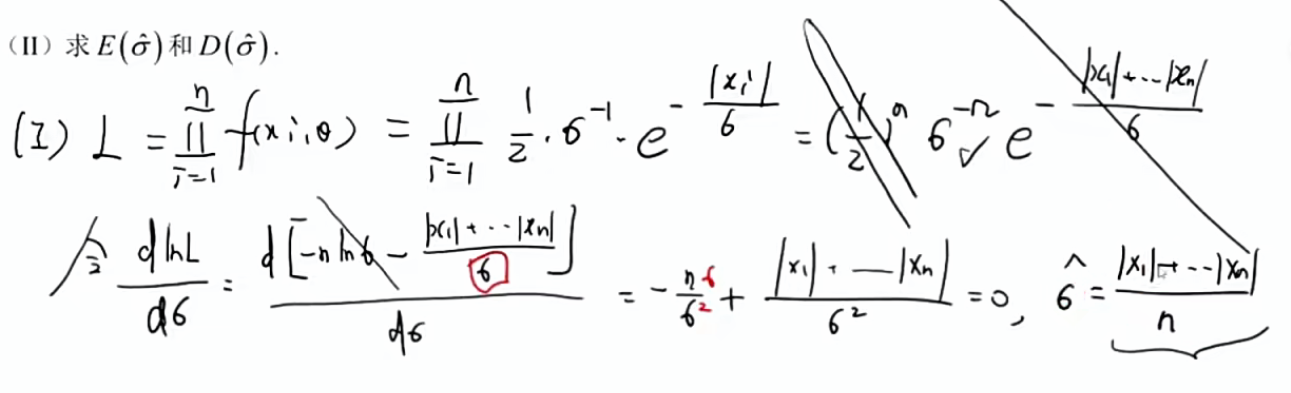 (II) 求 E(σ̂) 和 D(σ̂).
(I) L = ∏_{i=1}^{n} f(x_i,θ) = ∏_{i=1}^{n} 1/2 · σ^{-1} · e^{-|x_i|/σ} = (1/2)^n σ^{-n} e^{-(|x_1|+···|x_n|)/σ}
令 dlnL/dσ = d[-n lnσ - (|x_1|+··|x_n|)/σ]/dσ = -nσ/σ² + (|x_1|+—|x_n|)/σ² = 0, σ̂ = (|x_1|+··|x_n|)/n